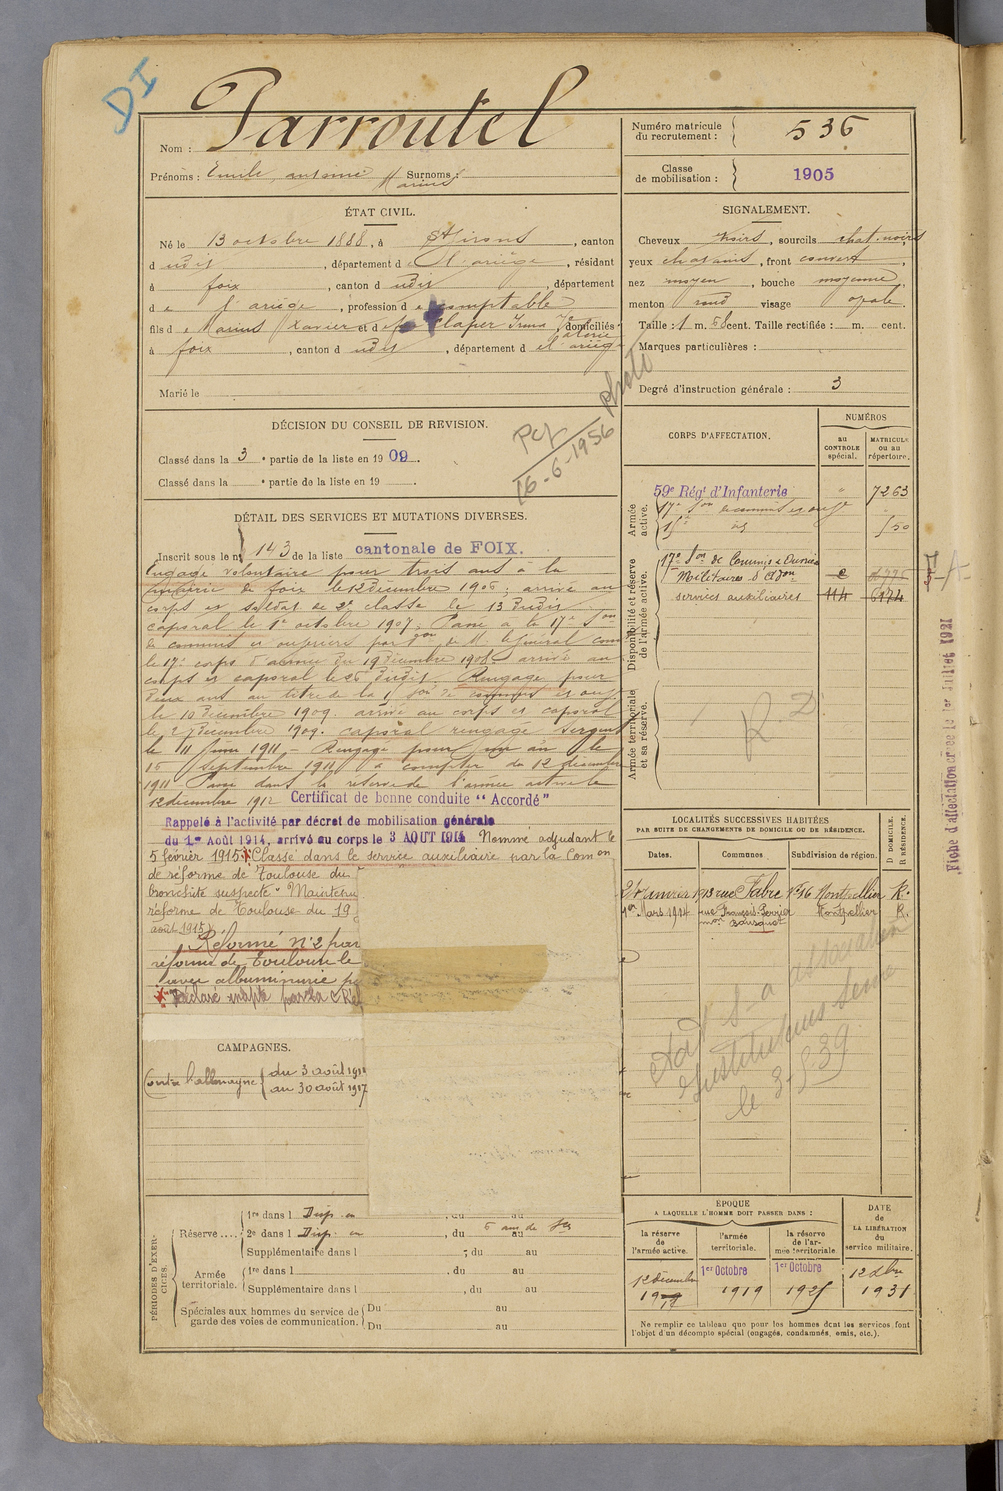 DI
Nom : Parroutel
Prénoms : Emile, antoine Marius Surnoms :
Numéro matricule du recrutement : 536
Classe de mobilisation : 1905
ÉTAT CIVIL.
Né le 13 octobre 1888, à St Girons, canton
dudit, département de l'ariège, résidant
à foix, canton dudit, département
de l'ariège, profession de comptable
fils de Marius Xavier et de Claper Irma, domiciliés
à foix, canton dudit, département de l'ariège
Marié le
SIGNALEMENT.
Cheveux noirs, sourcils chat. noirs
yeux chatains, front couvert,
nez moyen, bouche moyenne,
menton rond visage ovale.
Taille : 1 m. 58 cent. Taille rectifiée : m. cent.
Marques particulières :
Degré d'instruction générale : 3
photo
16-6-1956
DÉCISION DU CONSEIL DE REVISION.
Classé dans la 3e partie de la liste en 1909.
Classé dans la e partie de la liste en 19 .
CORPS D'AFFECTATION.
NUMÉROS
au CONTROLE spécial.
MATRICULE ou au répertoire.
Armée active.
59e Régt d'Infanterie " 7263
Disponibilité et réserve de l'armée active.
17e Son de Commis & Ouvriers
Militaires d'adon
services auxiliaires 114 6174
Armée territoriale et sa réserve.
R. D.
Fiche d'affectation créée le 1er Juillet 1921
DÉTAIL DES SERVICES ET MUTATIONS DIVERSES.
Inscrit sous le n° 143 de la liste cantonale de FOIX.
Engagé volontaire pour trois ans à la
mairie de foix le 12 décembre 1905; arrivé au
corps et soldat de 2e classe le 13 dudit
caporal le 1er octobre 1907; Passé à la 17e Son
de commis et ouvriers par on de M. le Général comt
le 17e corps d'armée du 19 décembre 1908 arrivé au
corps et caporal le 26 dudit. Rengagé pour
deux ans au titre de la 17 Son de commis et ouv
le 10 décembre 1909. arrivé au corps et caporal
le décembre 1909. caporal rengagé sergent
le 11 1911 - Rengagé pour un an le
15 septembre 1911 à compter du 12 décembre
1911 Passé dans la réserve de l'armée active le
12 décembre 1912 Certificat de bonne conduite "Accordé"
Rappelé à l'activité par décret de mobilisation générale
du 1er Août 1914, arrivé au corps le 3 AOUT 1914 Nommé adjudant le
5 février 1915. Classé dans le service auxiliaire par la Comon
de réforme de Toulouse du
bronchite suspecte" Maintenu
réforme de Toulouse du 19
août 1915)
Réformé N°2 par
réforme de Toulouse le
avec albuminurie
Déclaré inapte par la
LOCALITÉS SUCCESSIVES HABITÉES
PAR SUITE DE CHANGEMENTS DE DOMICILE OU DE RÉSIDENCE.
Dates. Communes. Subdivision de région. D DOMICILE. R RÉSIDENCE.
13 rue Fabre N°16 Montpellier R.
1er Mars 1914 rue François-Perrier Montpellier R.
mon Bousquet
association
Instituteurs
le 3-5-39
CAMPAGNES.
Contre l'allemagne du 3 août 1914
au 30 août 1917
PÉRIODES D'EXERCICES.
Réserve....
1re dans l Disp. , du au
2e dans l Disp. , du au
Supplémentaire dans l , du au
Armée territoriale.
1re dans l , du au
Supplémentaire dans l , du au
Spéciales aux hommes du service de garde des voies de communication.
Du au
Du au
ÉPOQUE
A LAQUELLE L'HOMME DOIT PASSER DANS :
la réserve de l'armée active.
l'armée territoriale.
la réserve de l'armée territoriale.
DATE de LA LIBÉRATION du service militaire.
12 décembre 1er Octobre 1919
1er Octobre 1925
12 Xbre 1931
Ne remplir ce tableau que pour les hommes dont les services font
l'objet d'un décompte spécial (engagés, condamnés, omis, etc.).